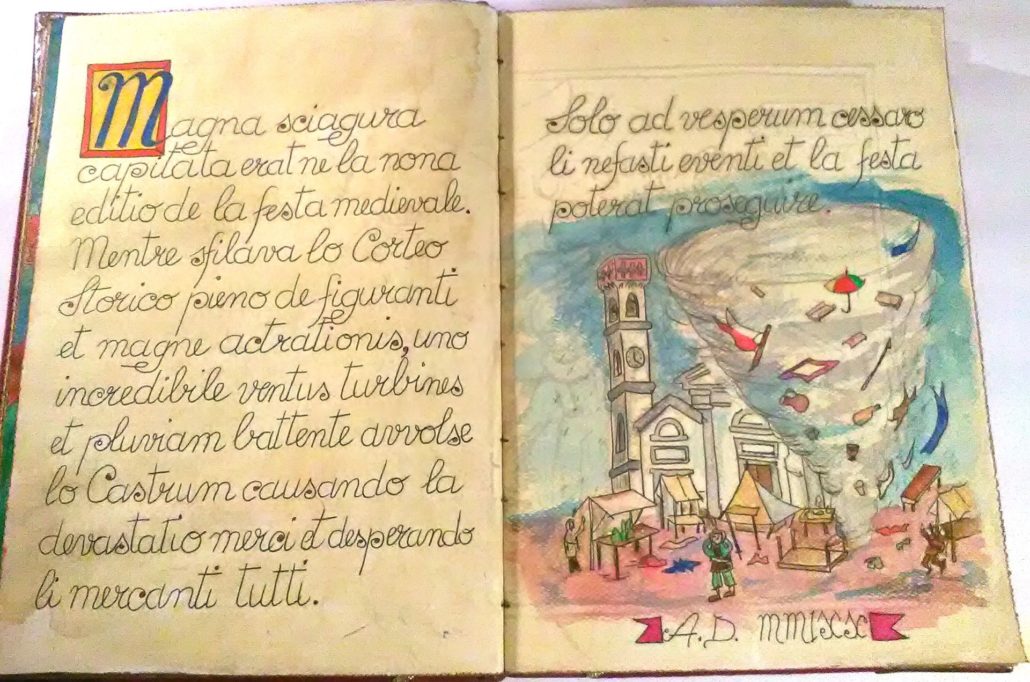 Magna sciagura
capitata erat ne la nona
editio de la festa medievale.
Mentre sfilava lo Corteo
Storico pieno de figuranti
et magne actrationis, uno
incredibile ventus turbines
et pluviam battente avvolse
lo Castrum causando la
devastatio merci et desperando
li mercanti tutti.
Solo ad vesperum cessaro
li nefasti eventi et la festa
poterat proseguire.
A.D.